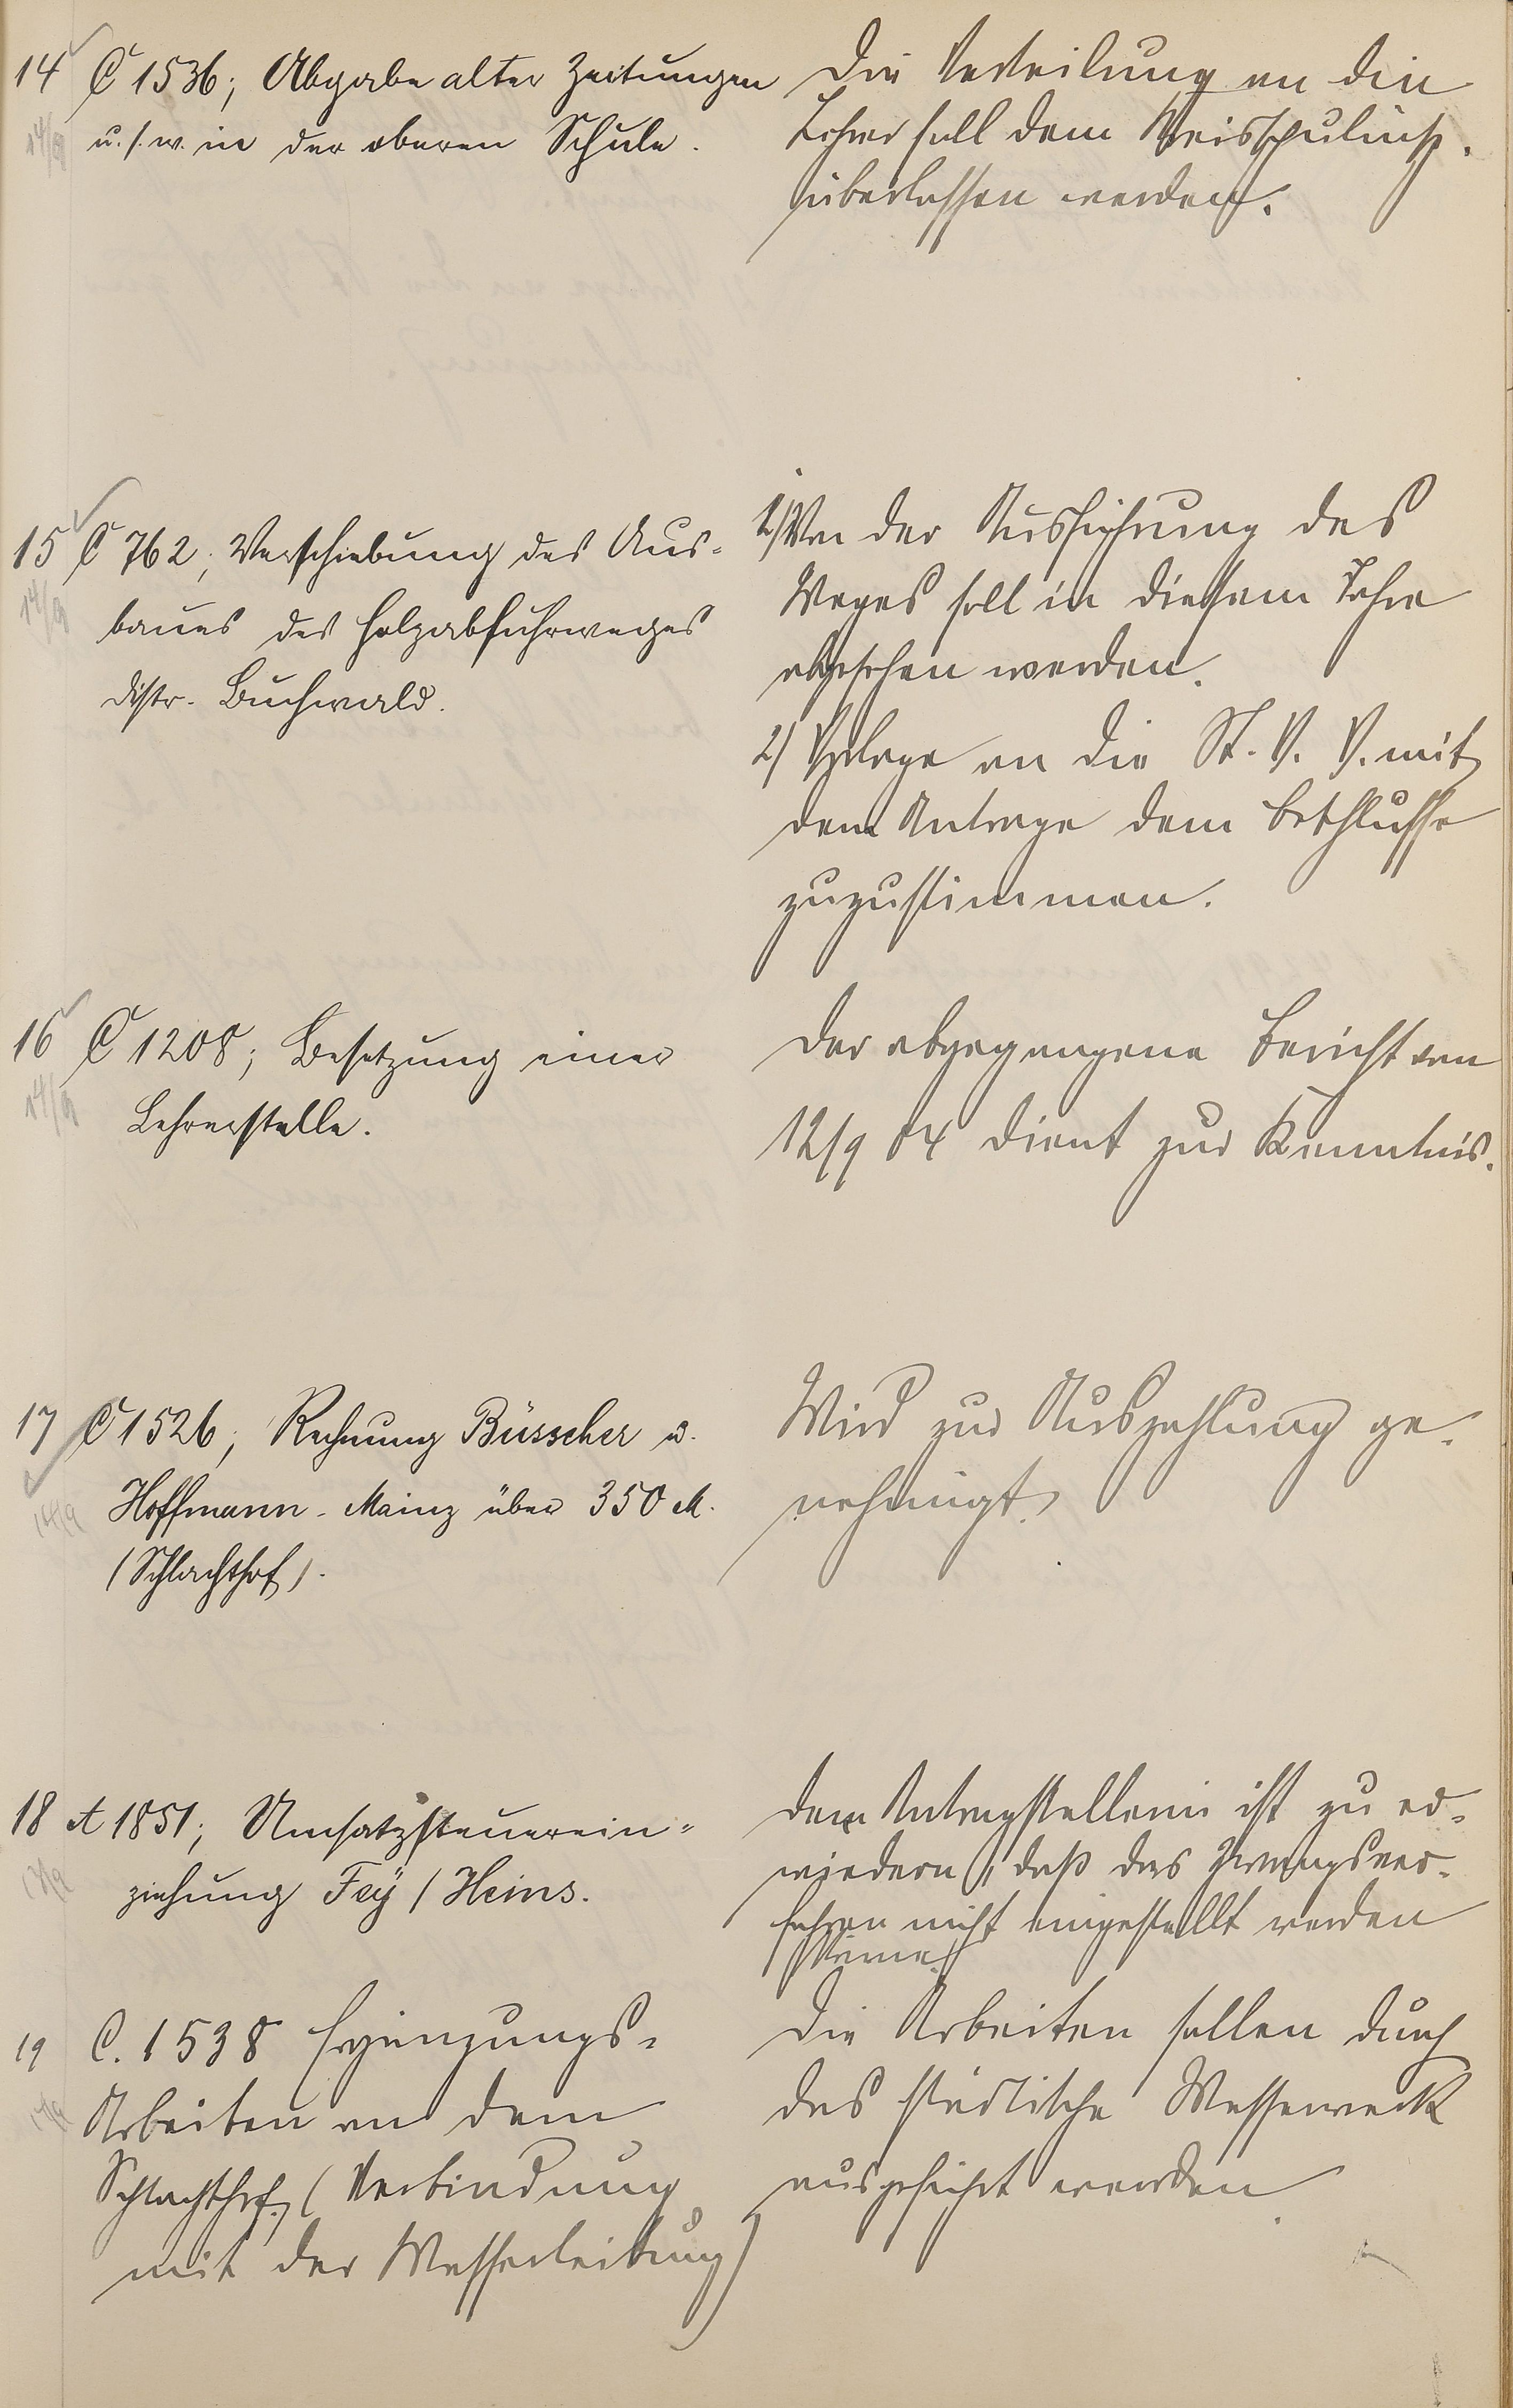 14 C 1536; Abgabe alter Zeitungen
14/9
u. s. w. in der oberen Schule.
Die Verteilung an die
Lehrer soll dem Kreisschulinsp.
überlassen werden.
15 C 762; Verschiebung des Aus-
14/9
baues des Holzabfuhrweges
Distr. Buchwald.
1) Von der Ausführung des
Weges soll in diesem Jahre
abgesehen werden.
2) Vorlage an die St. V. V. mit
dem Antrage dem Beschlusse
zuzustimmen.
16 C 1208; Besetzung einer
14/9
Lehrerstelle.
Der abgegangene Bericht vom
12/9 04 dient zur Kenntnis.
17 C 1526; Rechnung Büsscher u.
14/9
Hoffmann - Mainz über 350 M.
(Schlachthof).
Wird zur Auszahlung ge-
nehmigt.
18 A 1851; Umsatzsteuerein-
14/9
ziehung Fey / Heins.
Dem Antragsteller ist zu er-
wiedern, daß das Zwangsver-
fahren nicht eingestellt werden
könne.
19 C. 1538 Ergänzungs-
14/9
Arbeiten an dem
Schlachthof. (Verbindung
mit der Wasserleitung)
Die Arbeiten sollen durch
das städtische Wasserwerk
ausgeführt werden